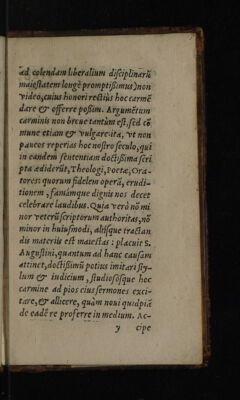 ad colendam liberalium disciplinarū
maiestatem longè promptißimus) non
video, cuius honori rectius hoc carmē
dare & offerre poßim. Argumētum
carminis non breue tantùm est, sed cō
mune etiam & vulgare ita, vt non
paucos reperias hoc nostro seculo, qui
in eandem sententiam doctißima scri
pta ædiderūt, Theologi, Poetæ, Ora-
tores: quorum fidelem operā, erudi-
tionem, famámque dignis nos decet
celebrare laudibus. Quia verò nō mi
nor veterū scriptorum authoritas, nō
minor in huiusmodi, altisque tractan
dis materiis est maiestas: placuit S.
Augustini, quantum ad hanc causam
attinet, doctißimū potius imitari sty-
lum & iudicium, studiososque hoc
carmine ad pios eius sermones exci-
tare, & allicere, quàm noui quidpiā
de eadē re proferre in medium. Ac-
y cipe